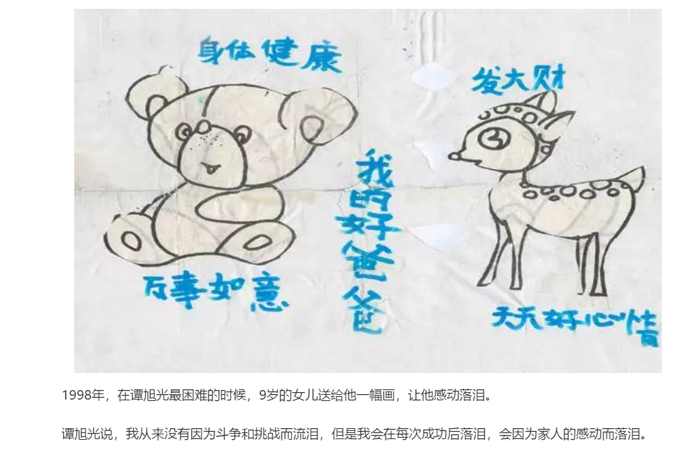 身体健康
发大财
我的好爸爸
万事如意
天天好心情
1998年，在谭旭光最困难的时候，9岁的女儿送给他一幅画，让他感动落泪。
谭旭光说，我从来没有因为斗争和挑战而流泪，但是我会在每次成功后落泪，会因为家人的感动而落泪。